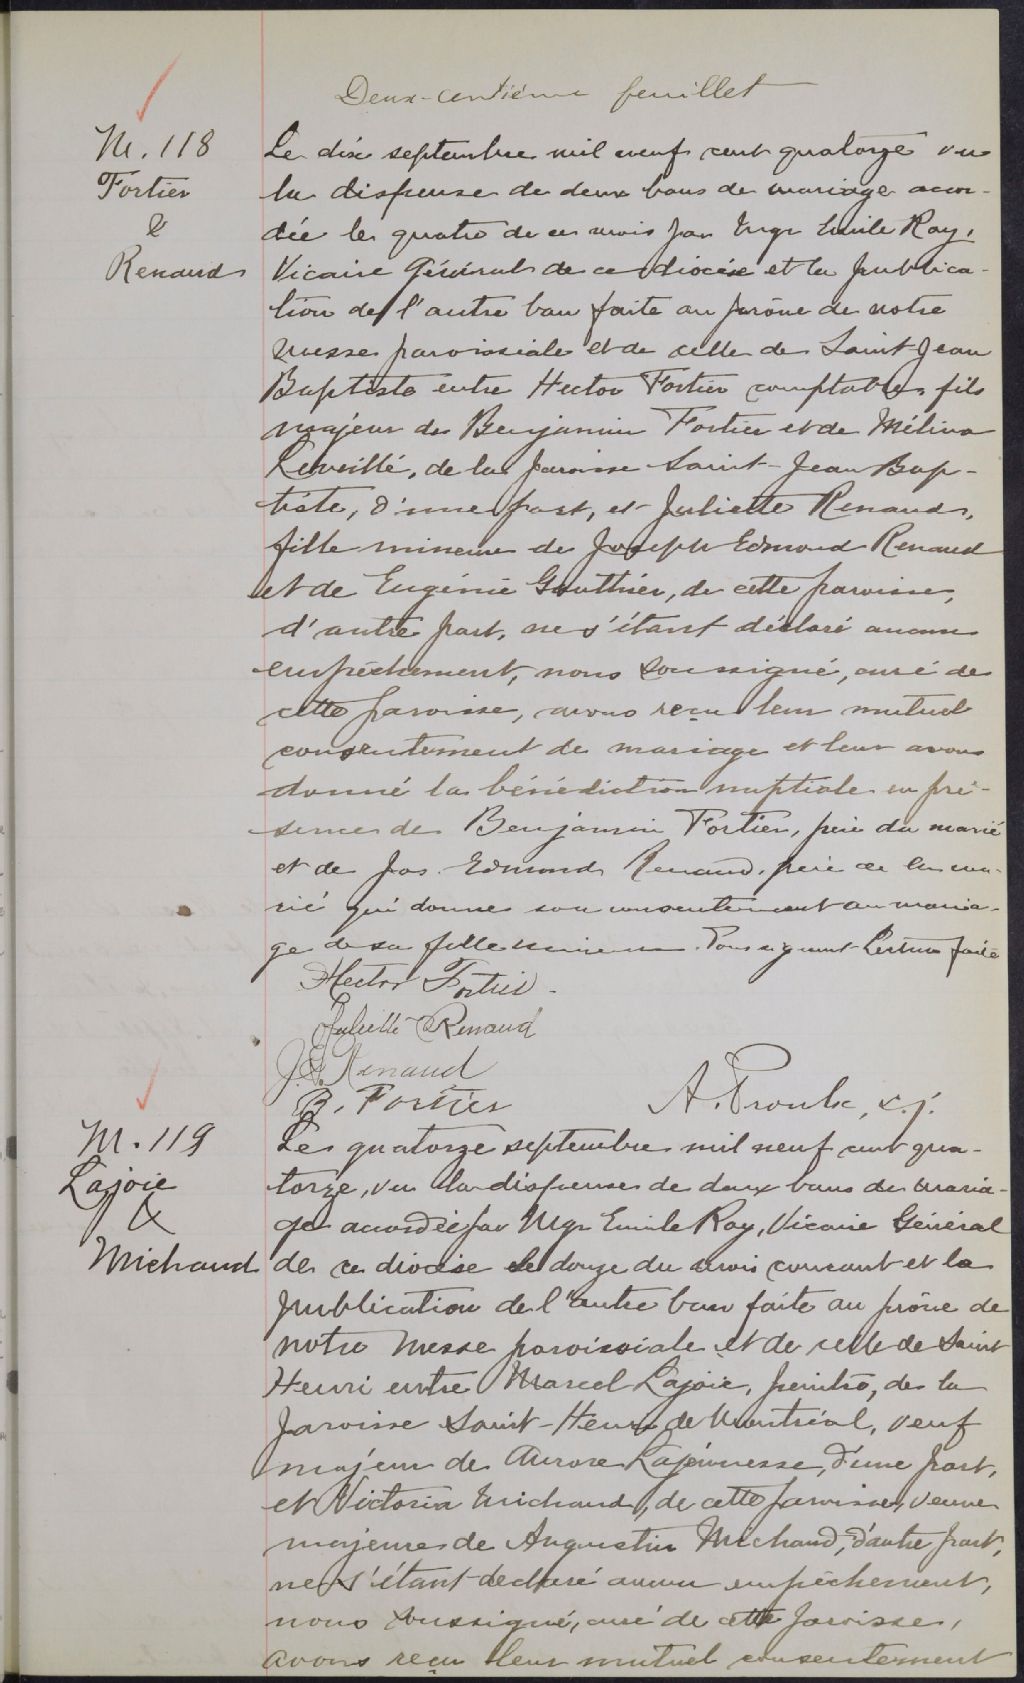 Deux-centième feuillet
M. 118
Fortier
&
Renaud
Le dix septembre mil neuf cent quatorze vu
la dispense de deux bans de mariage accor-
dée le quatre de ce mois par Mgr Emile Roy,
Vicaire Général de ce diocèse et la publica-
tion de l'autre ban faite au prône de notre
messe paroissiale et de celle de Saint Jean
Baptiste entre Hector Fortier comptable, fils
majeur de Benjamin Fortier et de Mélina
Léveillé, de la paroisse Saint-Jean Bap-
tiste, d'une part, et Juliette Renaud,
fille mineure de Joseph Edmond Renaud
et de Eugénie Gauthier, de cette paroisse,
d'autre part, ne s'étant déclaré aucun
empêchement, nous soussigné, curé de
cette paroisse, avons reçu leur mutuel
consentement de mariage et leur avons
donné la bénédiction nuptiale en pré-
sence de Benjamin Fortier, père du marié
et de Jos. Edmond Renaud, père de la ma-
rié qui donne son consentement au maria-
ge de sa fille mineure. Tous signent Lecture faite
Hector Fortier
Juliette Renaud
J. E. Renaud
B. Fortier
A. Proulx, s.j.
M. 119
Lajoie
&
Michaud
Le quatorze septembre mil neuf cent qua-
torze, vu la dispense de deux bans de maria-
ge accordée par Mgr Emile Roy, Vicaire Général
de ce diocèse le douze du mois courant et la
publication de l'autre ban faite au prône de
notre messe paroissiale et de celle de Saint
Henri entre Marcel Lajoie, peintre, de la
paroisse Saint-Henri de Montréal, veuf
majeur de Aurore Lajeunesse, d'une part,
et Victoria Michaud, de cette paroisse, veuve
majeure de Augustin Michaud, d'autre part,
ne s'étant déclaré aucun empêchement,
nous soussigné, curé de cette paroisse,
avons reçu leur mutuel consentement